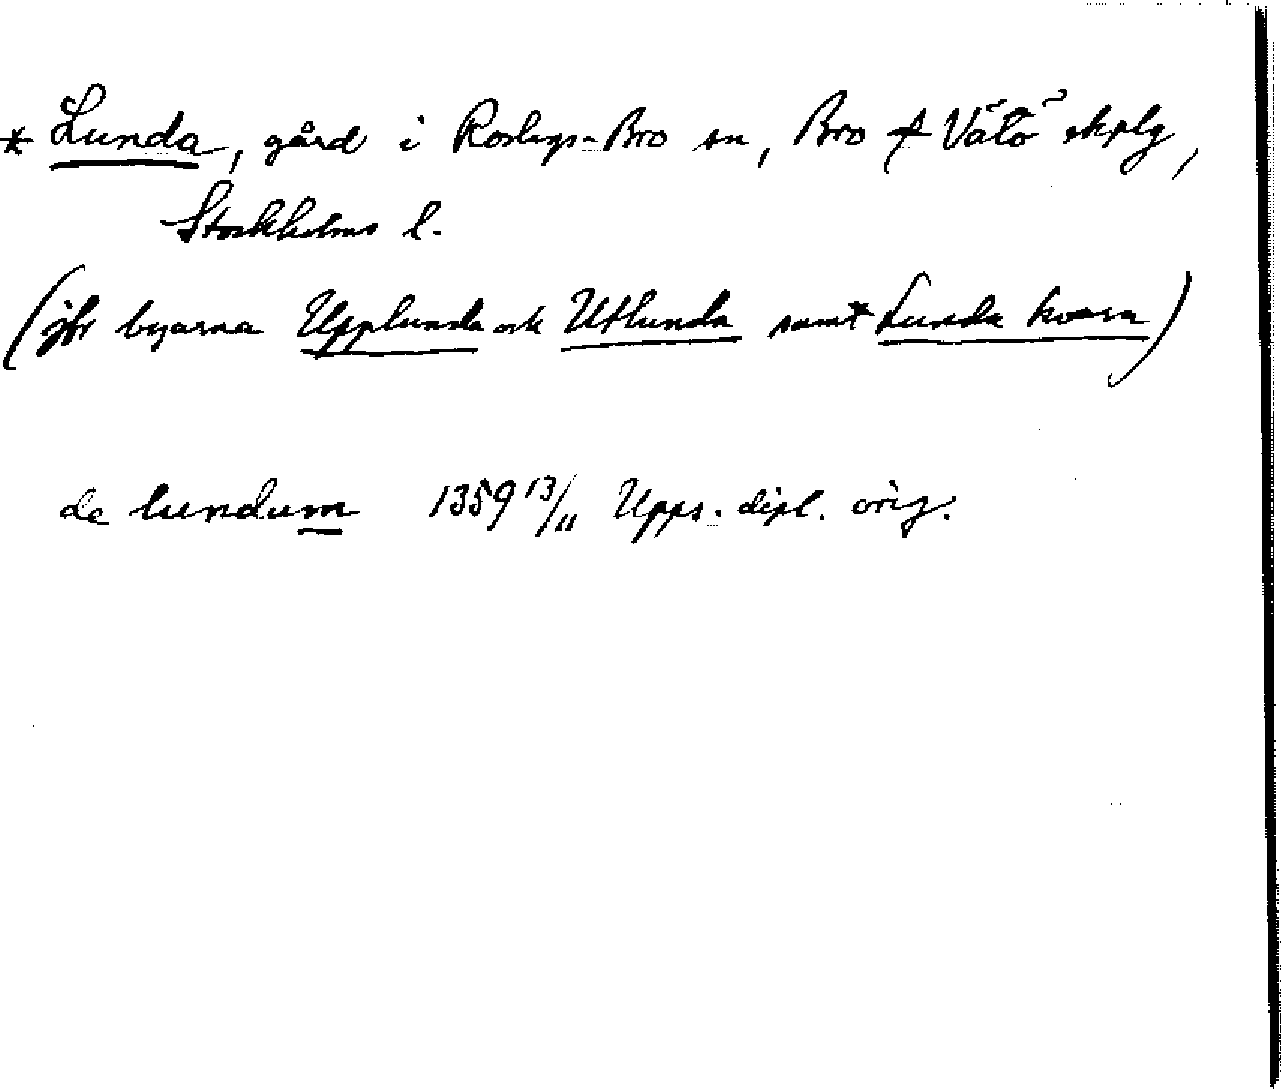 * Lunda, gård i Roslags-Bro sn, Bro o Vätö skplg,
Stockholms l.
(jfr byarna Upplunda och Utlunda samt * Lunda kvarn)
de lundum 1359 13/11 Upps. dipl. orig.